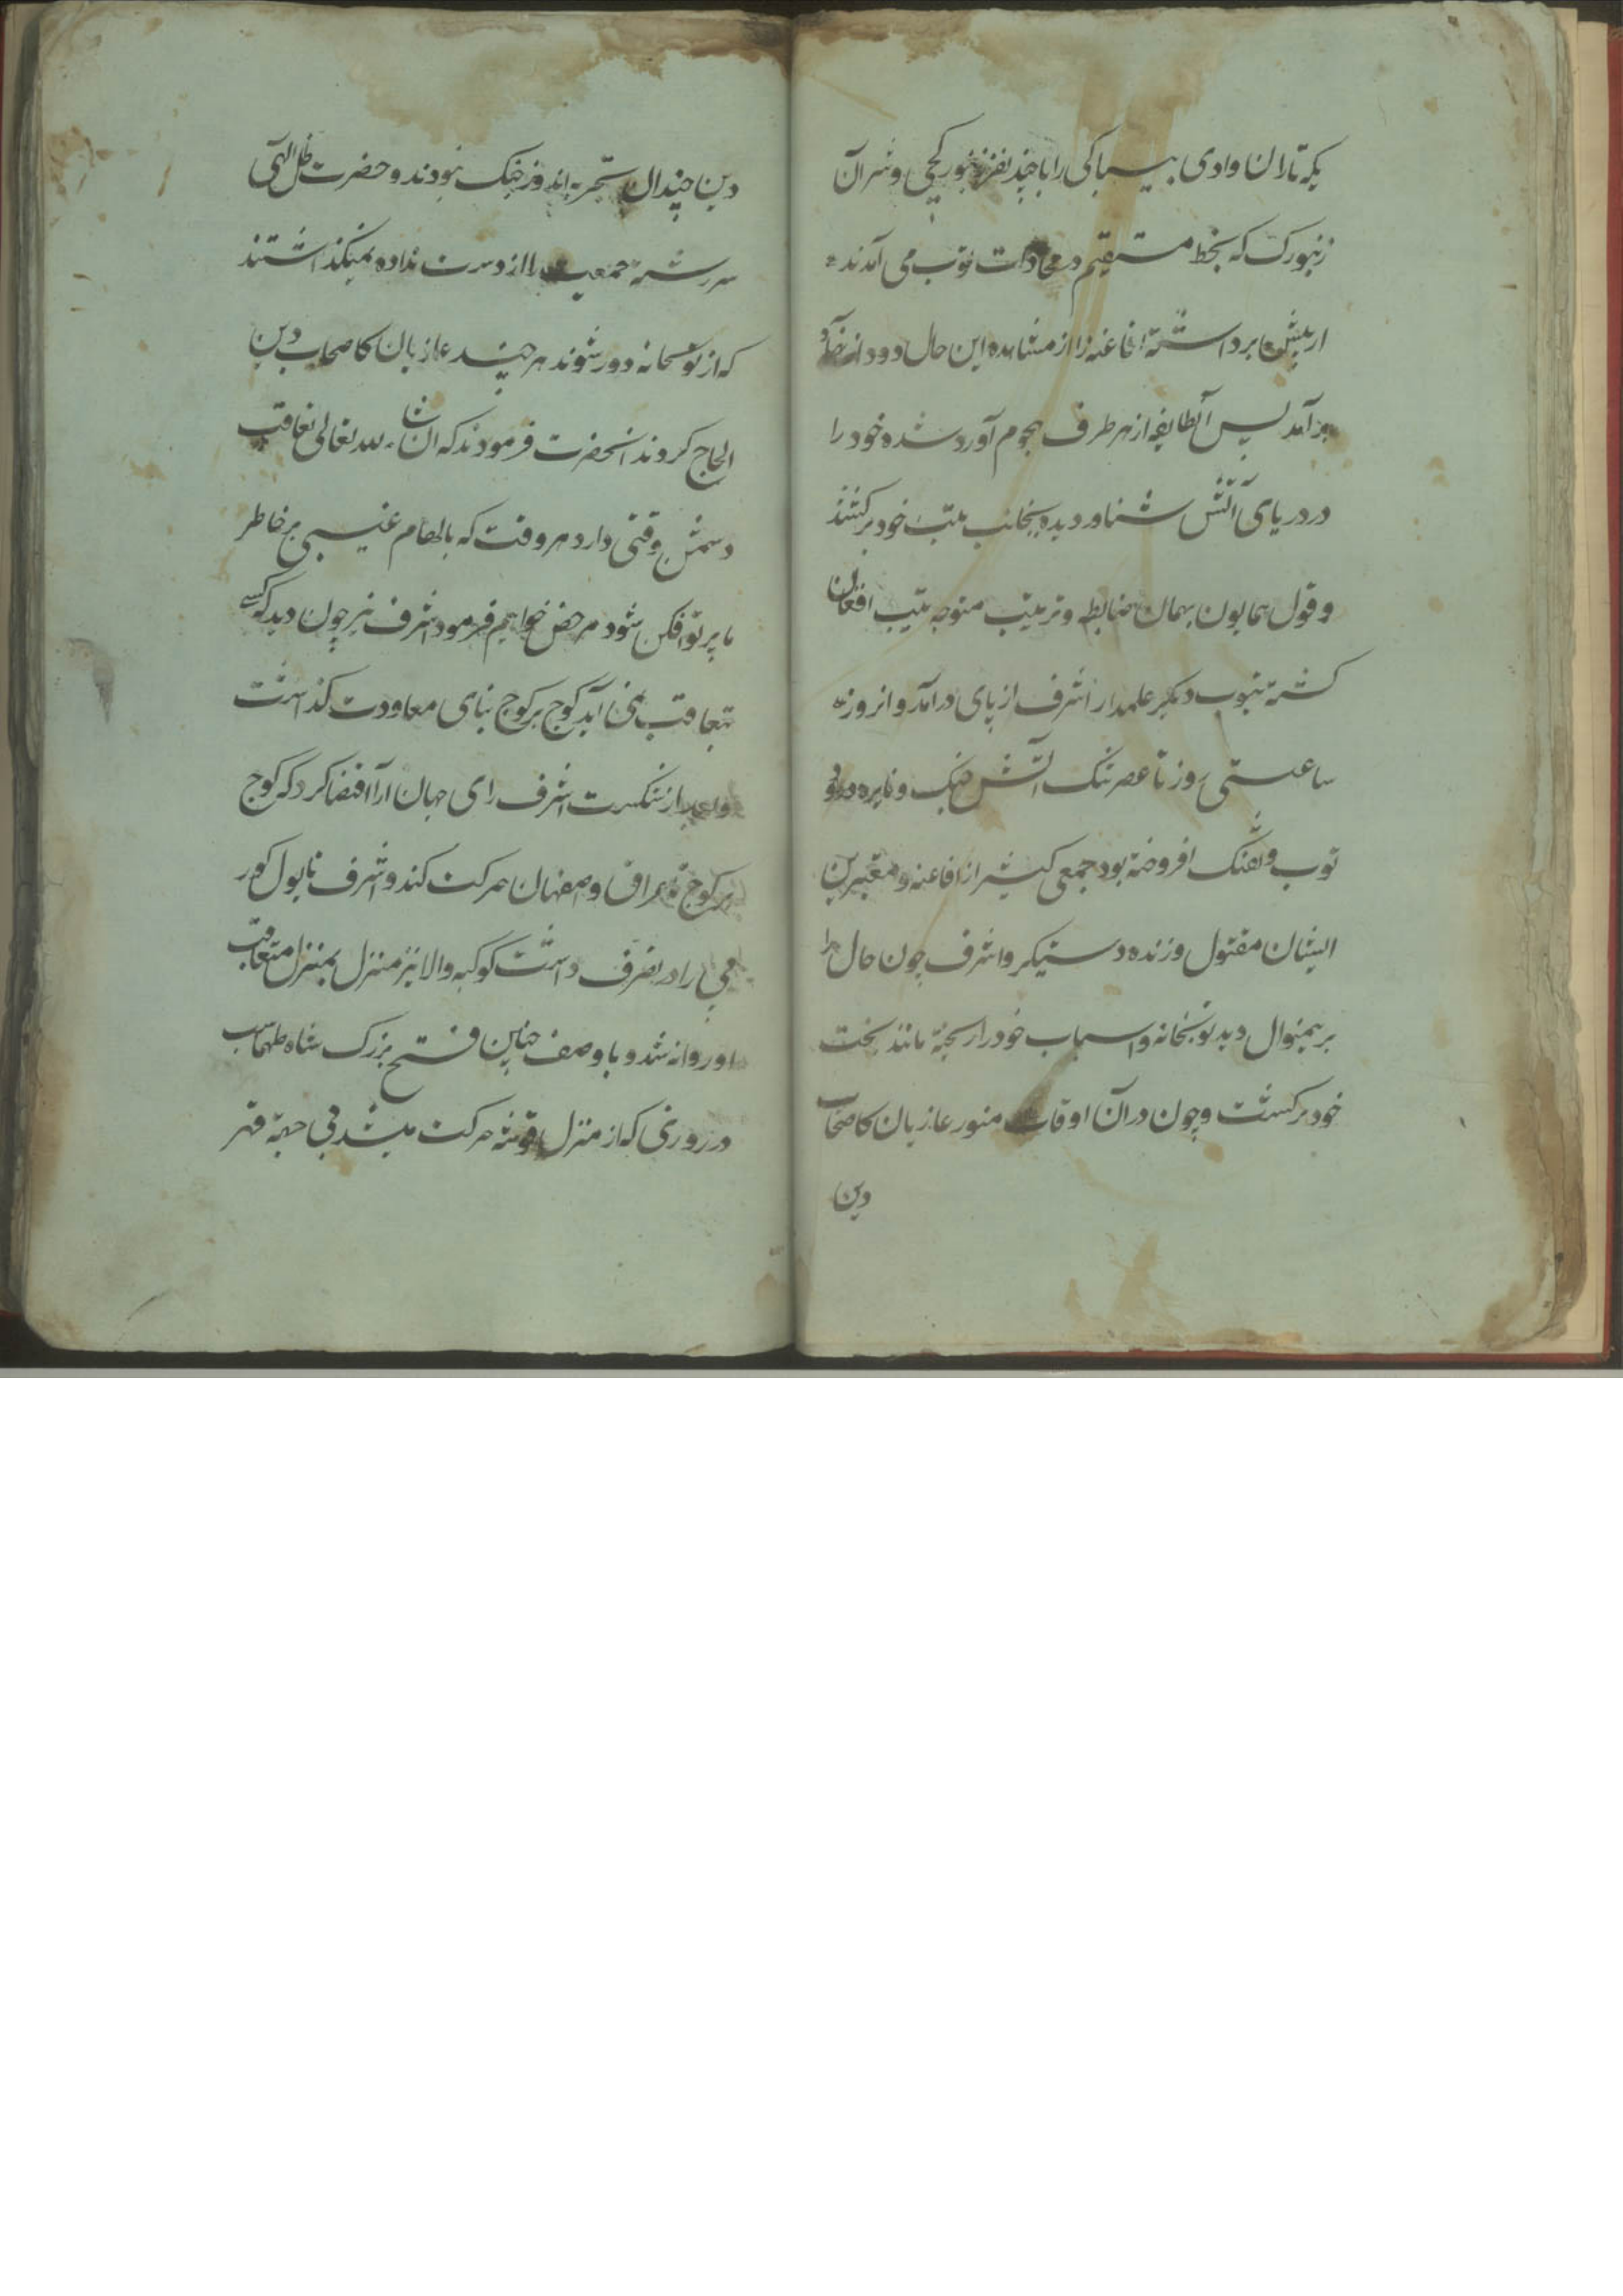 یکه تازان وادی بیباکی را با چند نفر زنبورکچی و شتران
زنبورک که بخط مستقیم در محاذات توپ می آمدند
از پیش برداشته افاغنه را از مشاهده این حال دود از نهاد
برآمد پس آنطایفه از هر طرف هجوم آورد شده خود را
در دریای آتش شناور دیده بجانب تیپ خود برکشتند
و قول همایون بهمان ضابطه و ترتیب متوجه تیپ افغان
کشته بتوپ دیکر علمدار اشرف از پای درآمد و انروز
ساعتی روز تا عصر تنک آتش جنک و نایره
توپ و تفنک افروخته بود جمعی کثیر از افاغنه و معتبرین
ایشان مقتول و زنده دستیکر و اشرف چون حال را
برینمنوال دید توپخانه و اسباب خود را ریخته مانند بخت
خود برکشت و چون در آن اوقات منور غازیان کاصحاب
دین
دین چندان تجربه اندوز جنک نبودند و حضرت ظل الهی
سررشته جمعیت را از دست نداده نمیکذاشتند
که از توپخانه دور شوند هر چند غازیان کاصحاب دین
الحاح کردند انحضرت فرمودند که انشاء الله تعالی تعاقب
دشمن وقتی دارد هر وقت که بالهام غیبی بر خاطر
ما پرتو افکن شود مرخص خواهیم فرمود اشرف نیز چون دید که کسی
بتعاقب نمی آید کوچ بر کوچ بنای معاودت کذاشت
و بعد از شکست اشرف رای جهان آرا اقتضا کرد که کوچ
بر کوچ عراق و اصفهان حرکت کند و اشرف
می را در تصرف داشت کوکبه والا نیز منزل بمنزل متعاقب
او روانه شد و با وصف چنین فتح بزرک شاه طهماسب
در روزی که از منزل قوشه حرکت میشد بی جهة قهر